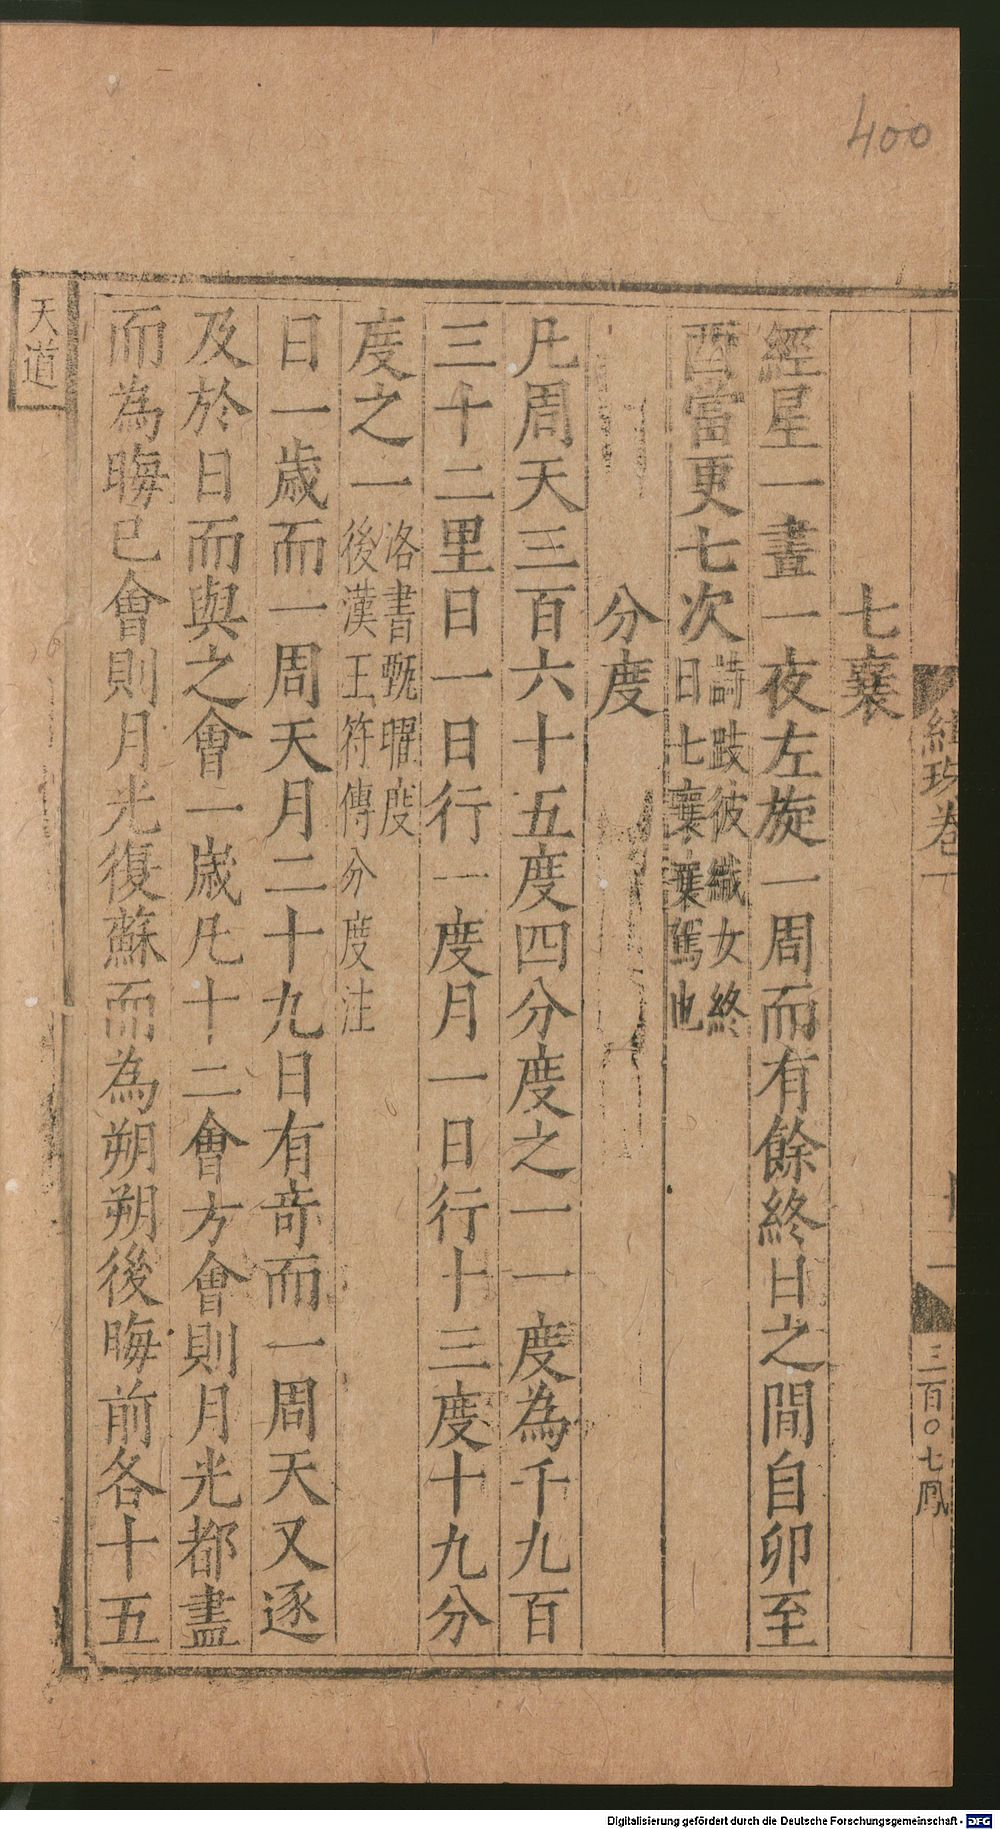 400
緝珎卷
三百〇七鳳
七襄
經星一晝一夜左旋一周而有餘終日之間自卯至
酉當更七次詩跂彼織女終
日七襄襄駕也
分度
凡周天三百六十五度四分度之一一度為千九百
三十二里日一日行一度月一日行十三度十九分
度之一洛書甄曜度
後漢王符傳分度注
日一歲而一周天月二十九日有竒而一周天又逐
及於日而與之會一歲凡十二會方會則月光都盡
而為晦已會則月光復蘇而為朔朔後晦前各十五
天道
Digitalisierung gefördert durch die Deutsche Forschungsgemeinschaft - DFG